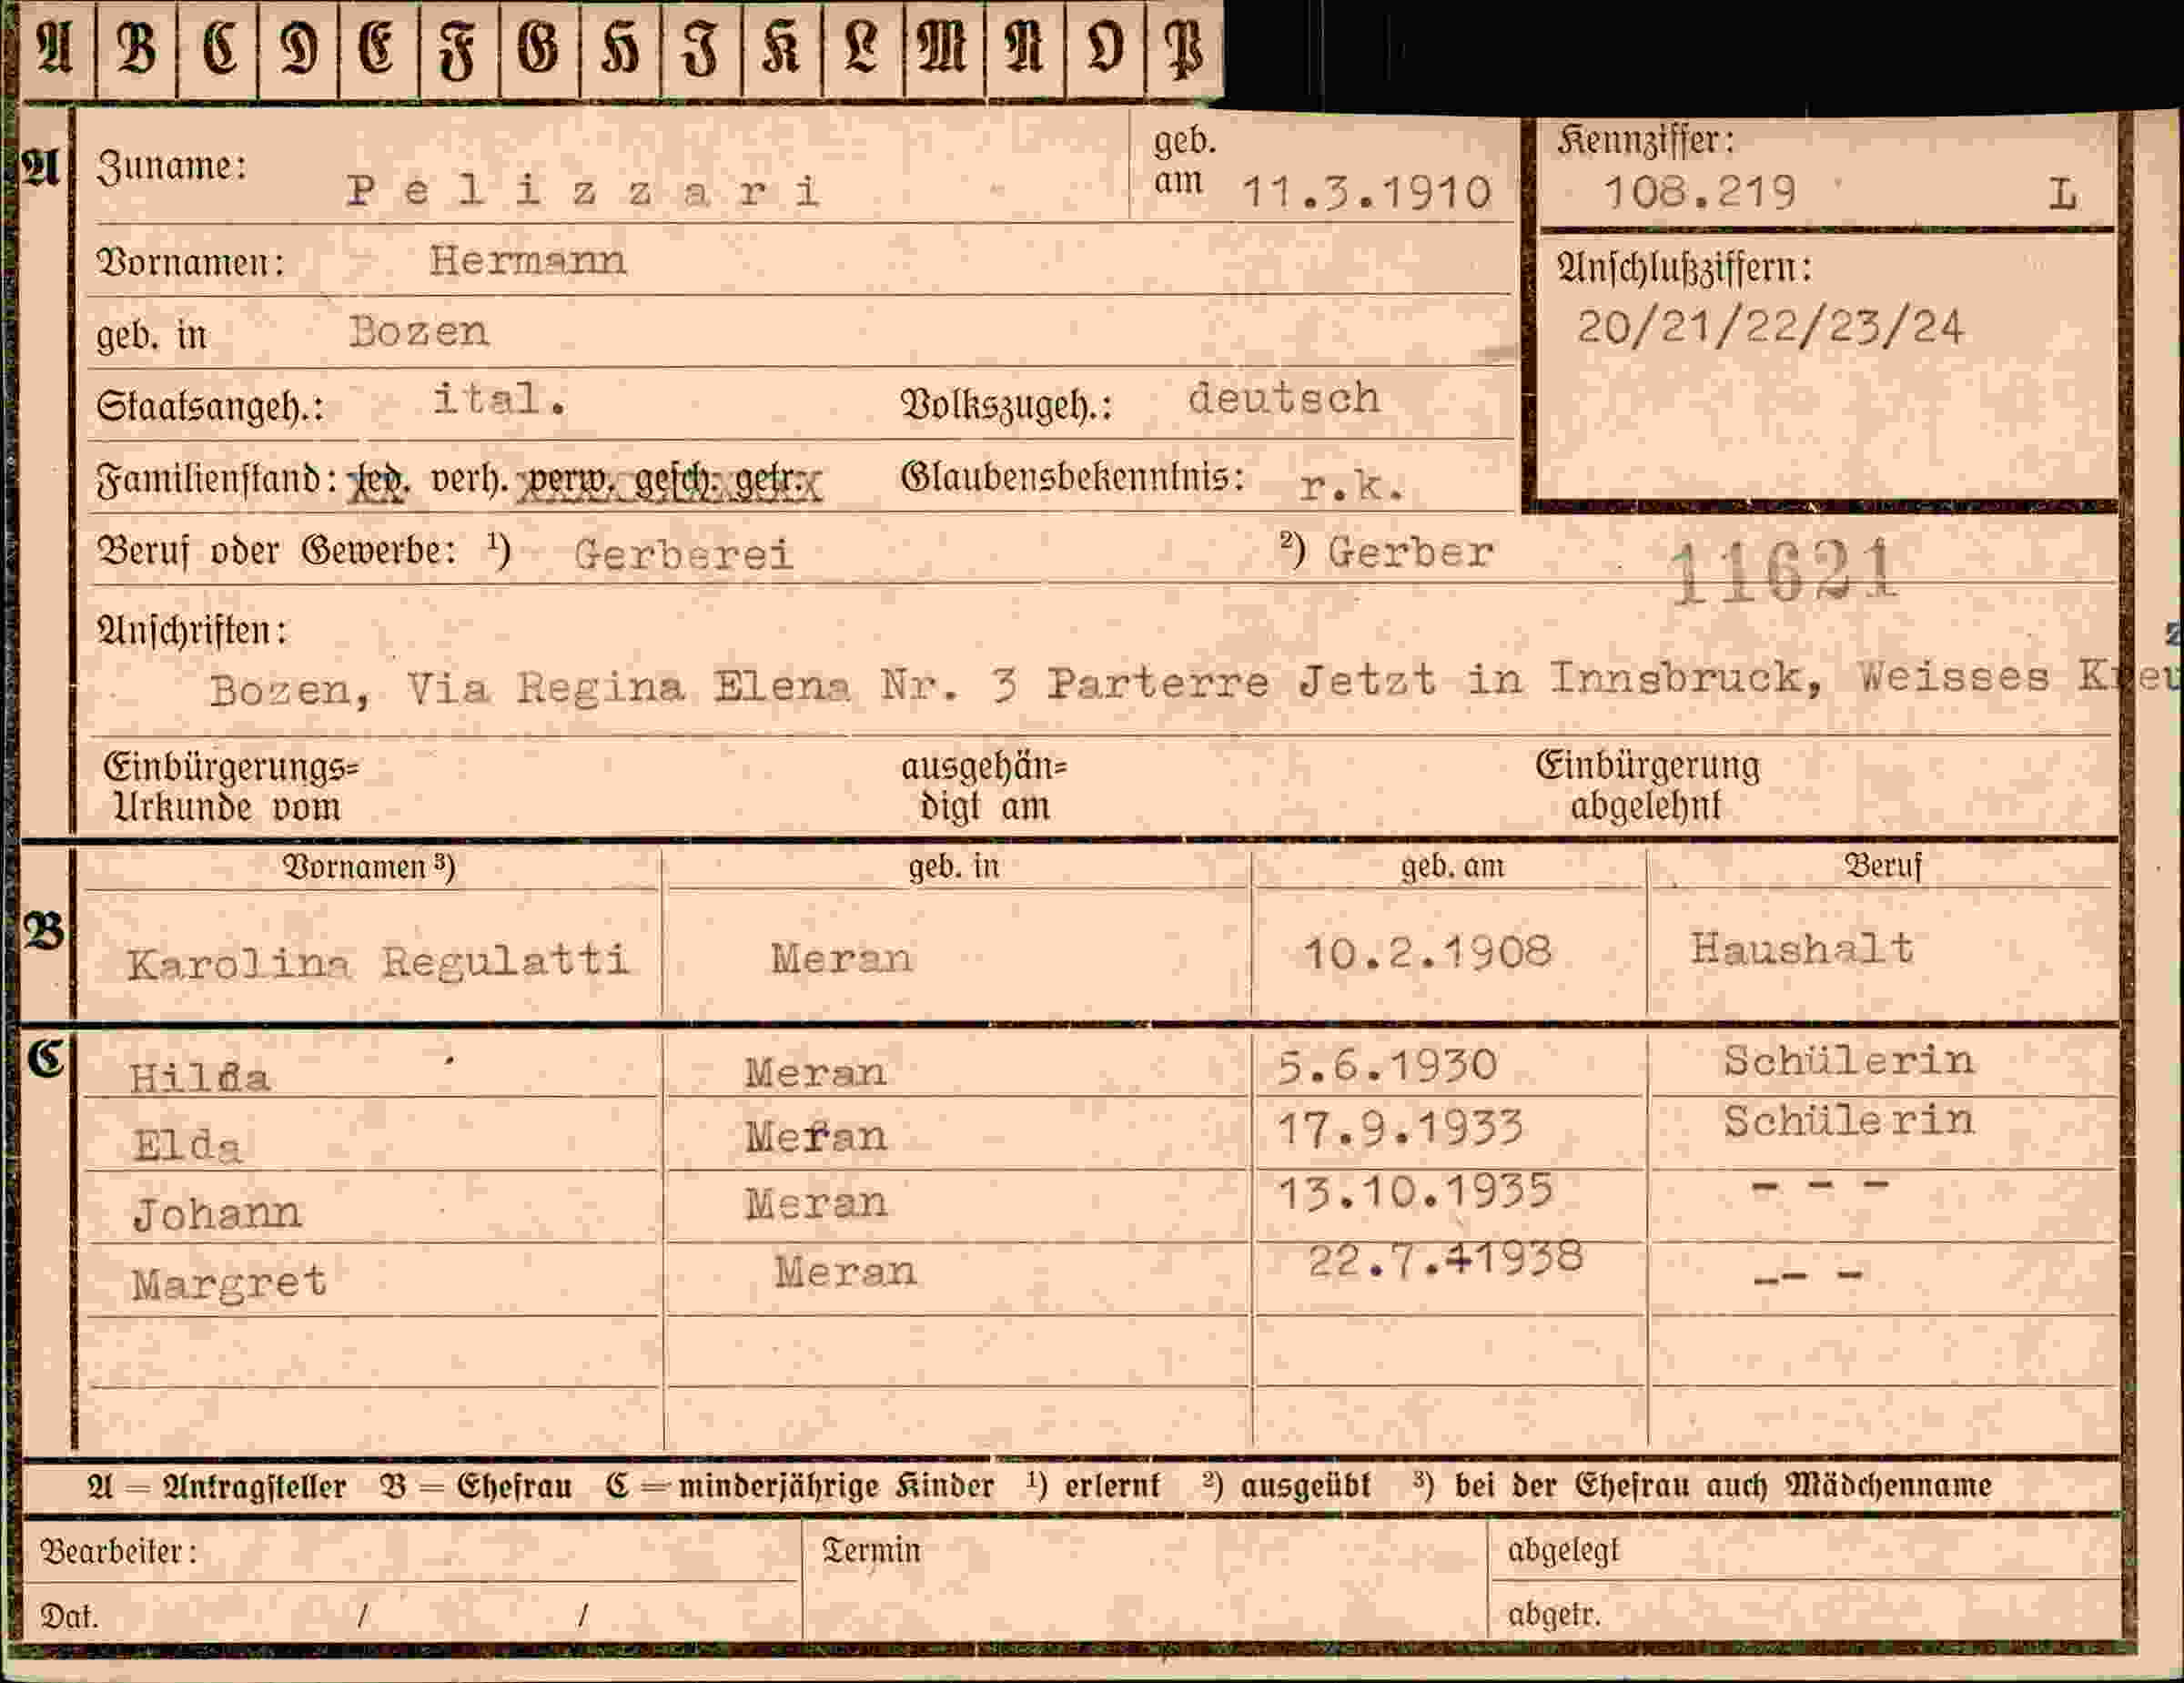 A B C D E F G H J K L M N O P
A Zuname: Pelizzari geb. am 11.3.1910 Kennziffer: 108.219 L
Vornamen: Hermann Anschlußziffern:
geb. in Bozen 20/21/22/23/24
Staatsangeh.: ital. Volkszugeh.: deutsch
Familienstand: led. verh. verw. gesch. getr. Glaubensbekenntnis: r.k.
Beruf oder Gewerbe: ¹) Gerberei ²) Gerber 11621
Anschriften:
Bozen, Via Regina Elena Nr. 3 Parterre Jetzt in Innsbruck, Weisses Kreu
Einbürgerungs= ausgehän= Einbürgerung
Urkunde vom digt am abgelehnt
Vornamen ³) geb. in geb. am Beruf
B Karolina Regulatti Meran 10.2.1908 Haushalt
C Hilda Meran 5.6.1930 Schülerin
Elda Meran 17.9.1933 Schülerin
Johann Meran 13.10.1935 - - -
Margret Meran 22.7.41938 -- -
A = Antragsteller B = Ehefrau C = minderjährige Kinder ¹) erlernt ²) ausgeübt ³) bei der Ehefrau auch Mädchenname
Bearbeiter: Termin abgelegt
Dat. / / abgetr.